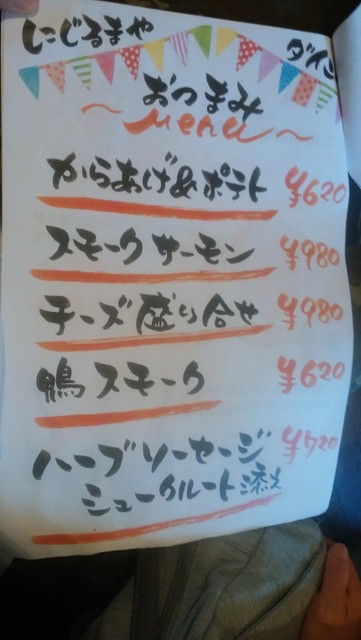 にじるまや
ダイン
おつまみ
～Menu～
からあげ&ポテト ¥620
スモークサーモン ¥980
チーズ盛り合せ ¥980
鴨スモーク ¥620
ハーブソーセージ ¥720
シュークルート添え